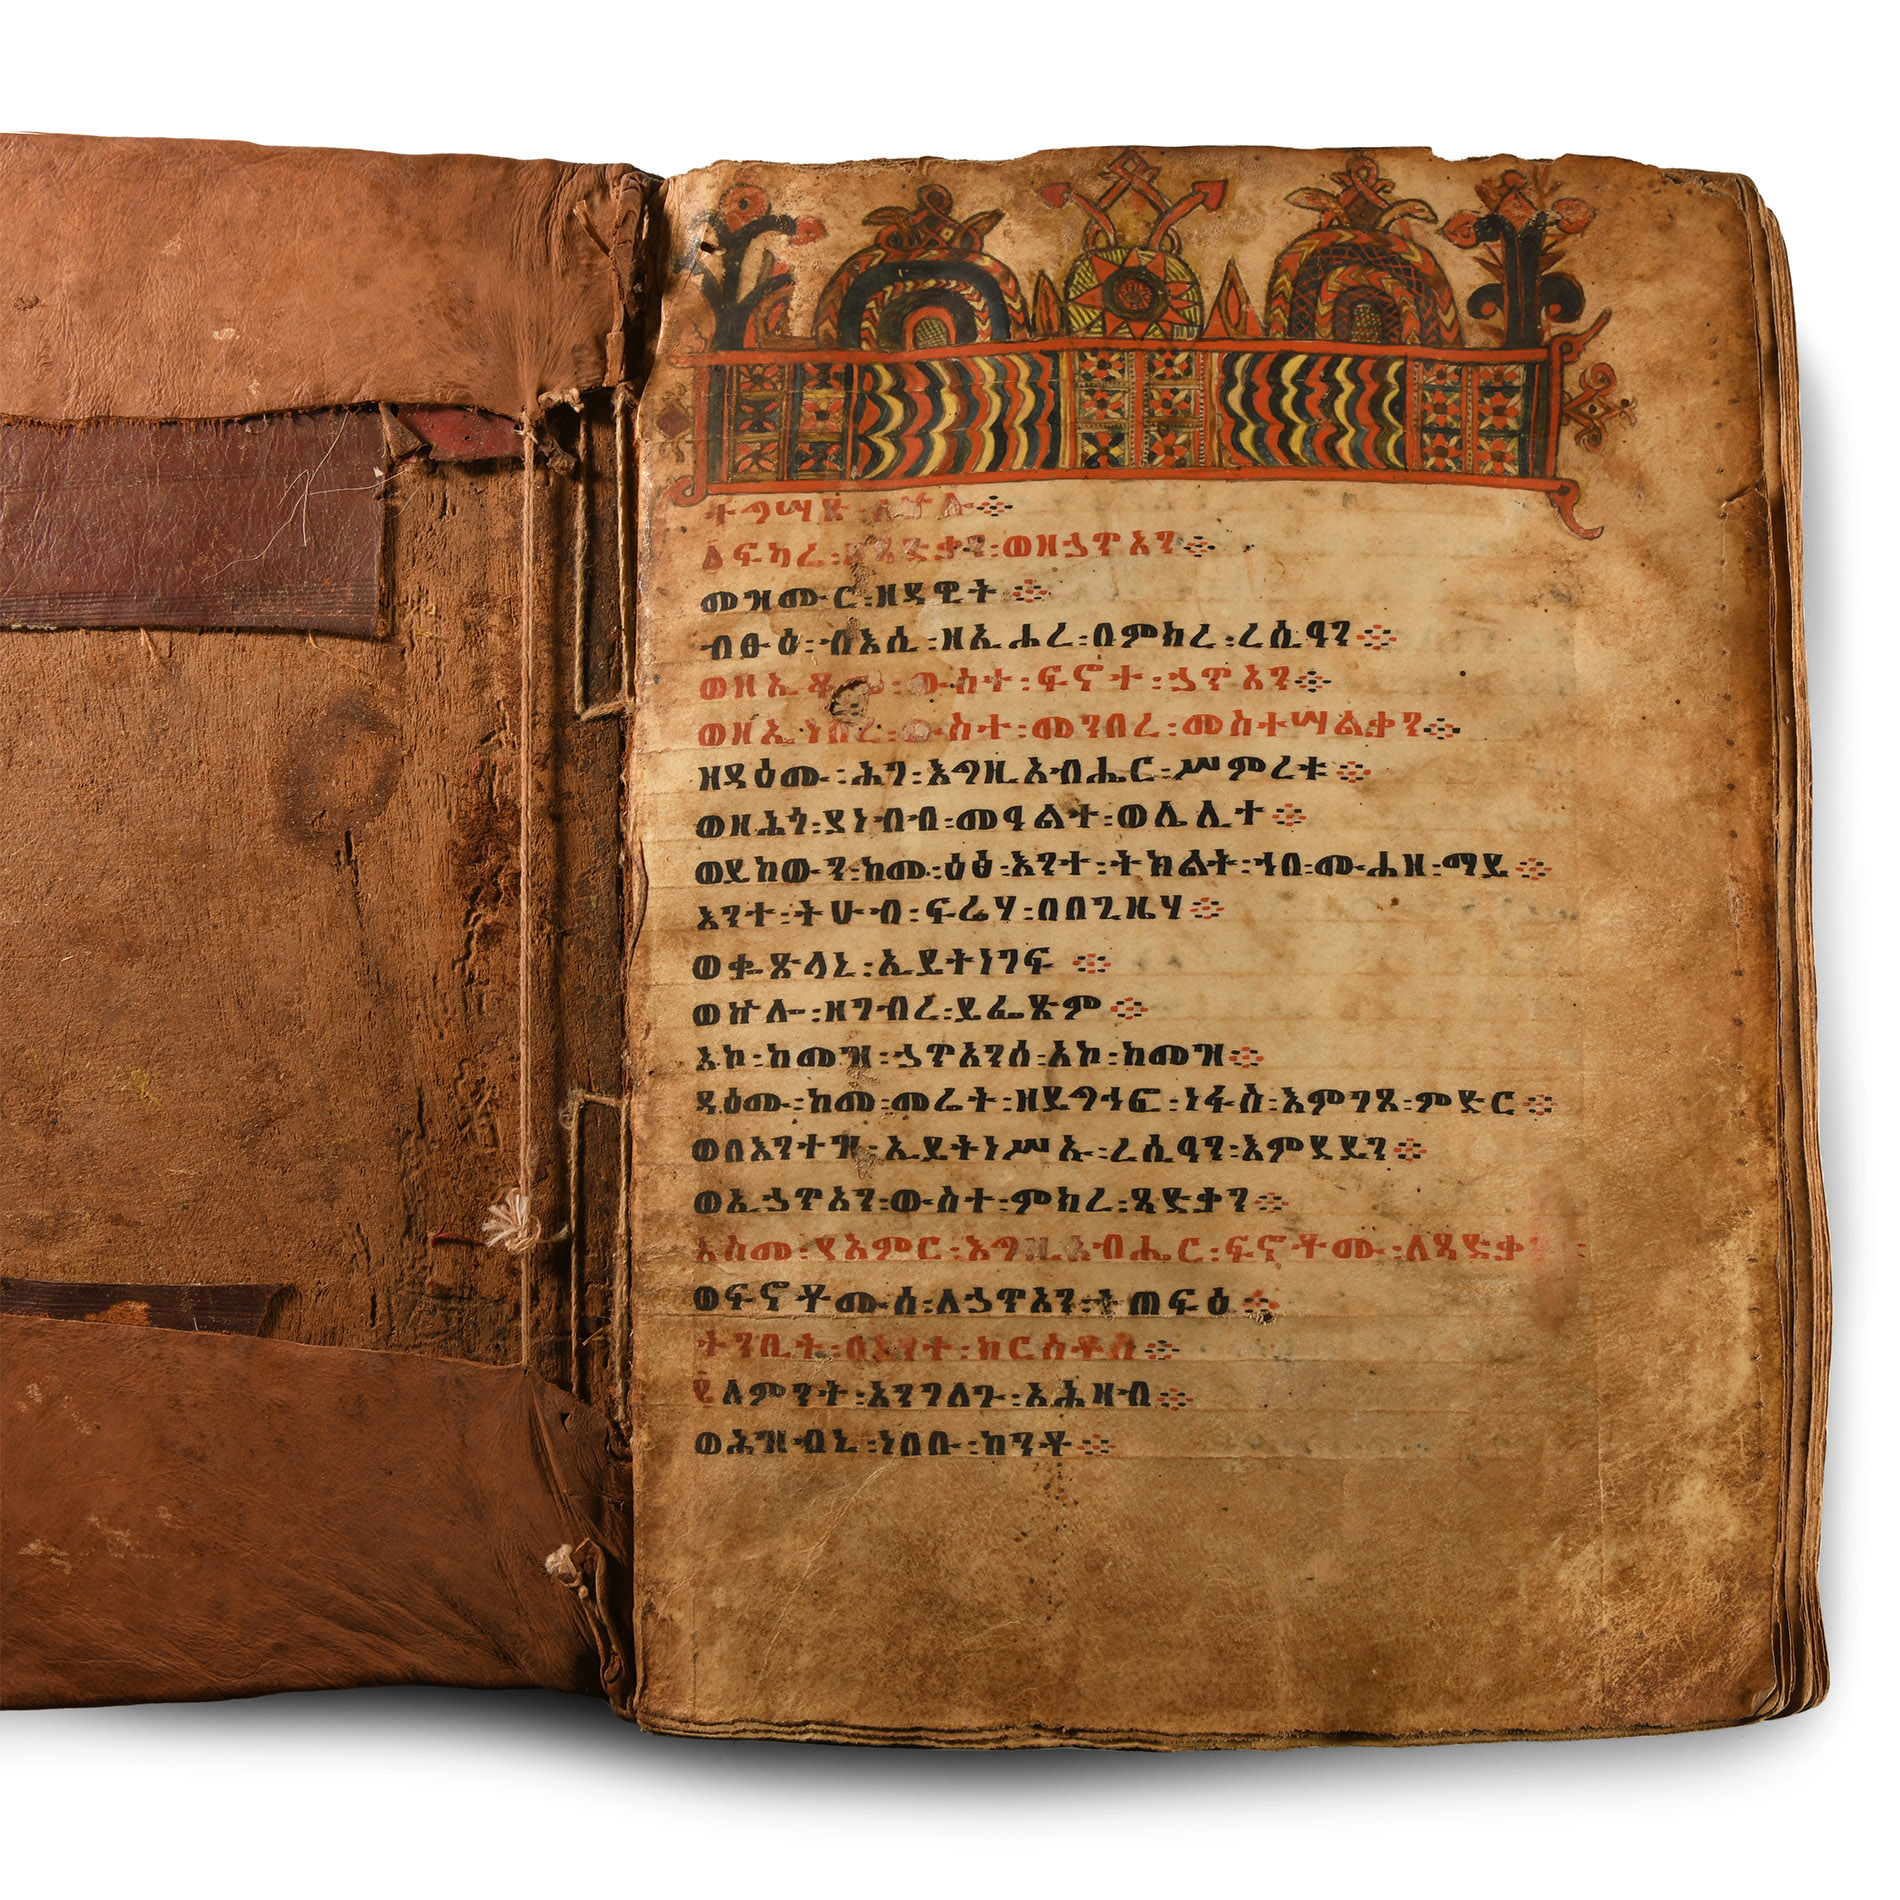 ተግሣጽ ለኵሉ ፨
ፍካሬ ፡ ዘጻድቃን ፡ ወዘኃጥአን ፨
መዝሙር ፡ ዘዳዊት ፨
ብፁዕ ፡ ብእሲ ፡ ዘኢሖረ ፡ በምክረ ፡ ረሲዓን ፨
ወዘኢቆመ ፡ ውስተ ፡ ፍኖተ ፡ ኃጥአን ፨
ወዘኢነበረ ፡ ውስተ ፡ መንበረ ፡ መስተሣልቃን ፨
ዘዳዕሙ ፡ ሕገ ፡ እግዚአብሔር ፡ ሥምረቱ ፨
ወዘሕጎ ፡ ያነብብ ፡ መዓልተ ፡ ወሌሊተ ፨
ወይከውን ፡ ከመ ፡ ዕፅ ፡ እንተ ፡ ትክልት ፡ ኀበ ፡ ሙሐዘ ፡ ማይ ፨
እንተ ፡ ትሁብ ፡ ፍሬሃ ፡ በበጊዜሃ ፨
ወቈጽላኒ ፡ ኢይትነገፍ ፨
ወኵሎ ፡ ዘገብረ ፡ ይፌጽም ፨
አኮ ፡ ከመዝ ፡ ኃጥአንሰ ፡ አኮ ፡ ከመዝ ፨
ዳዕሙ ፡ ከመ ፡ መሬት ፡ ዘይግኅፎ ፡ ነፋስ ፡ እምገጸ ፡ ምድር ፨
ወበእንተዝ ፡ ኢይትነሥኡ ፡ ረሲዓን ፡ እምደይን ፨
ወኢኃጥአን ፡ ውስተ ፡ ምክረ ፡ ጻድቃን ፨
እስመ ፡ ያአምር ፡ እግዚአብሔር ፡ ፍኖቶሙ ፡ ለጻድቃን ፡
ወፍኖቶሙሰ ፡ ለኃጥአን ፡ ትጠፍዕ ፨
ትንቢት ፡ በእንተ ፡ ክርስቶስ ፨
፪ ለምንት ፡ አንገለጉ ፡ አሕዛብ ፨
ወሕዝብኒ ፡ ነበቡ ፡ ከንቶ ፨